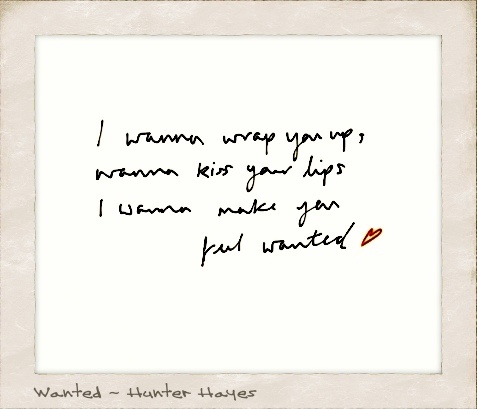 I wanna wrap you up,
wanna kiss your lips
I wanna make you
feel wanted
Wanted ~ Hunter Hayes